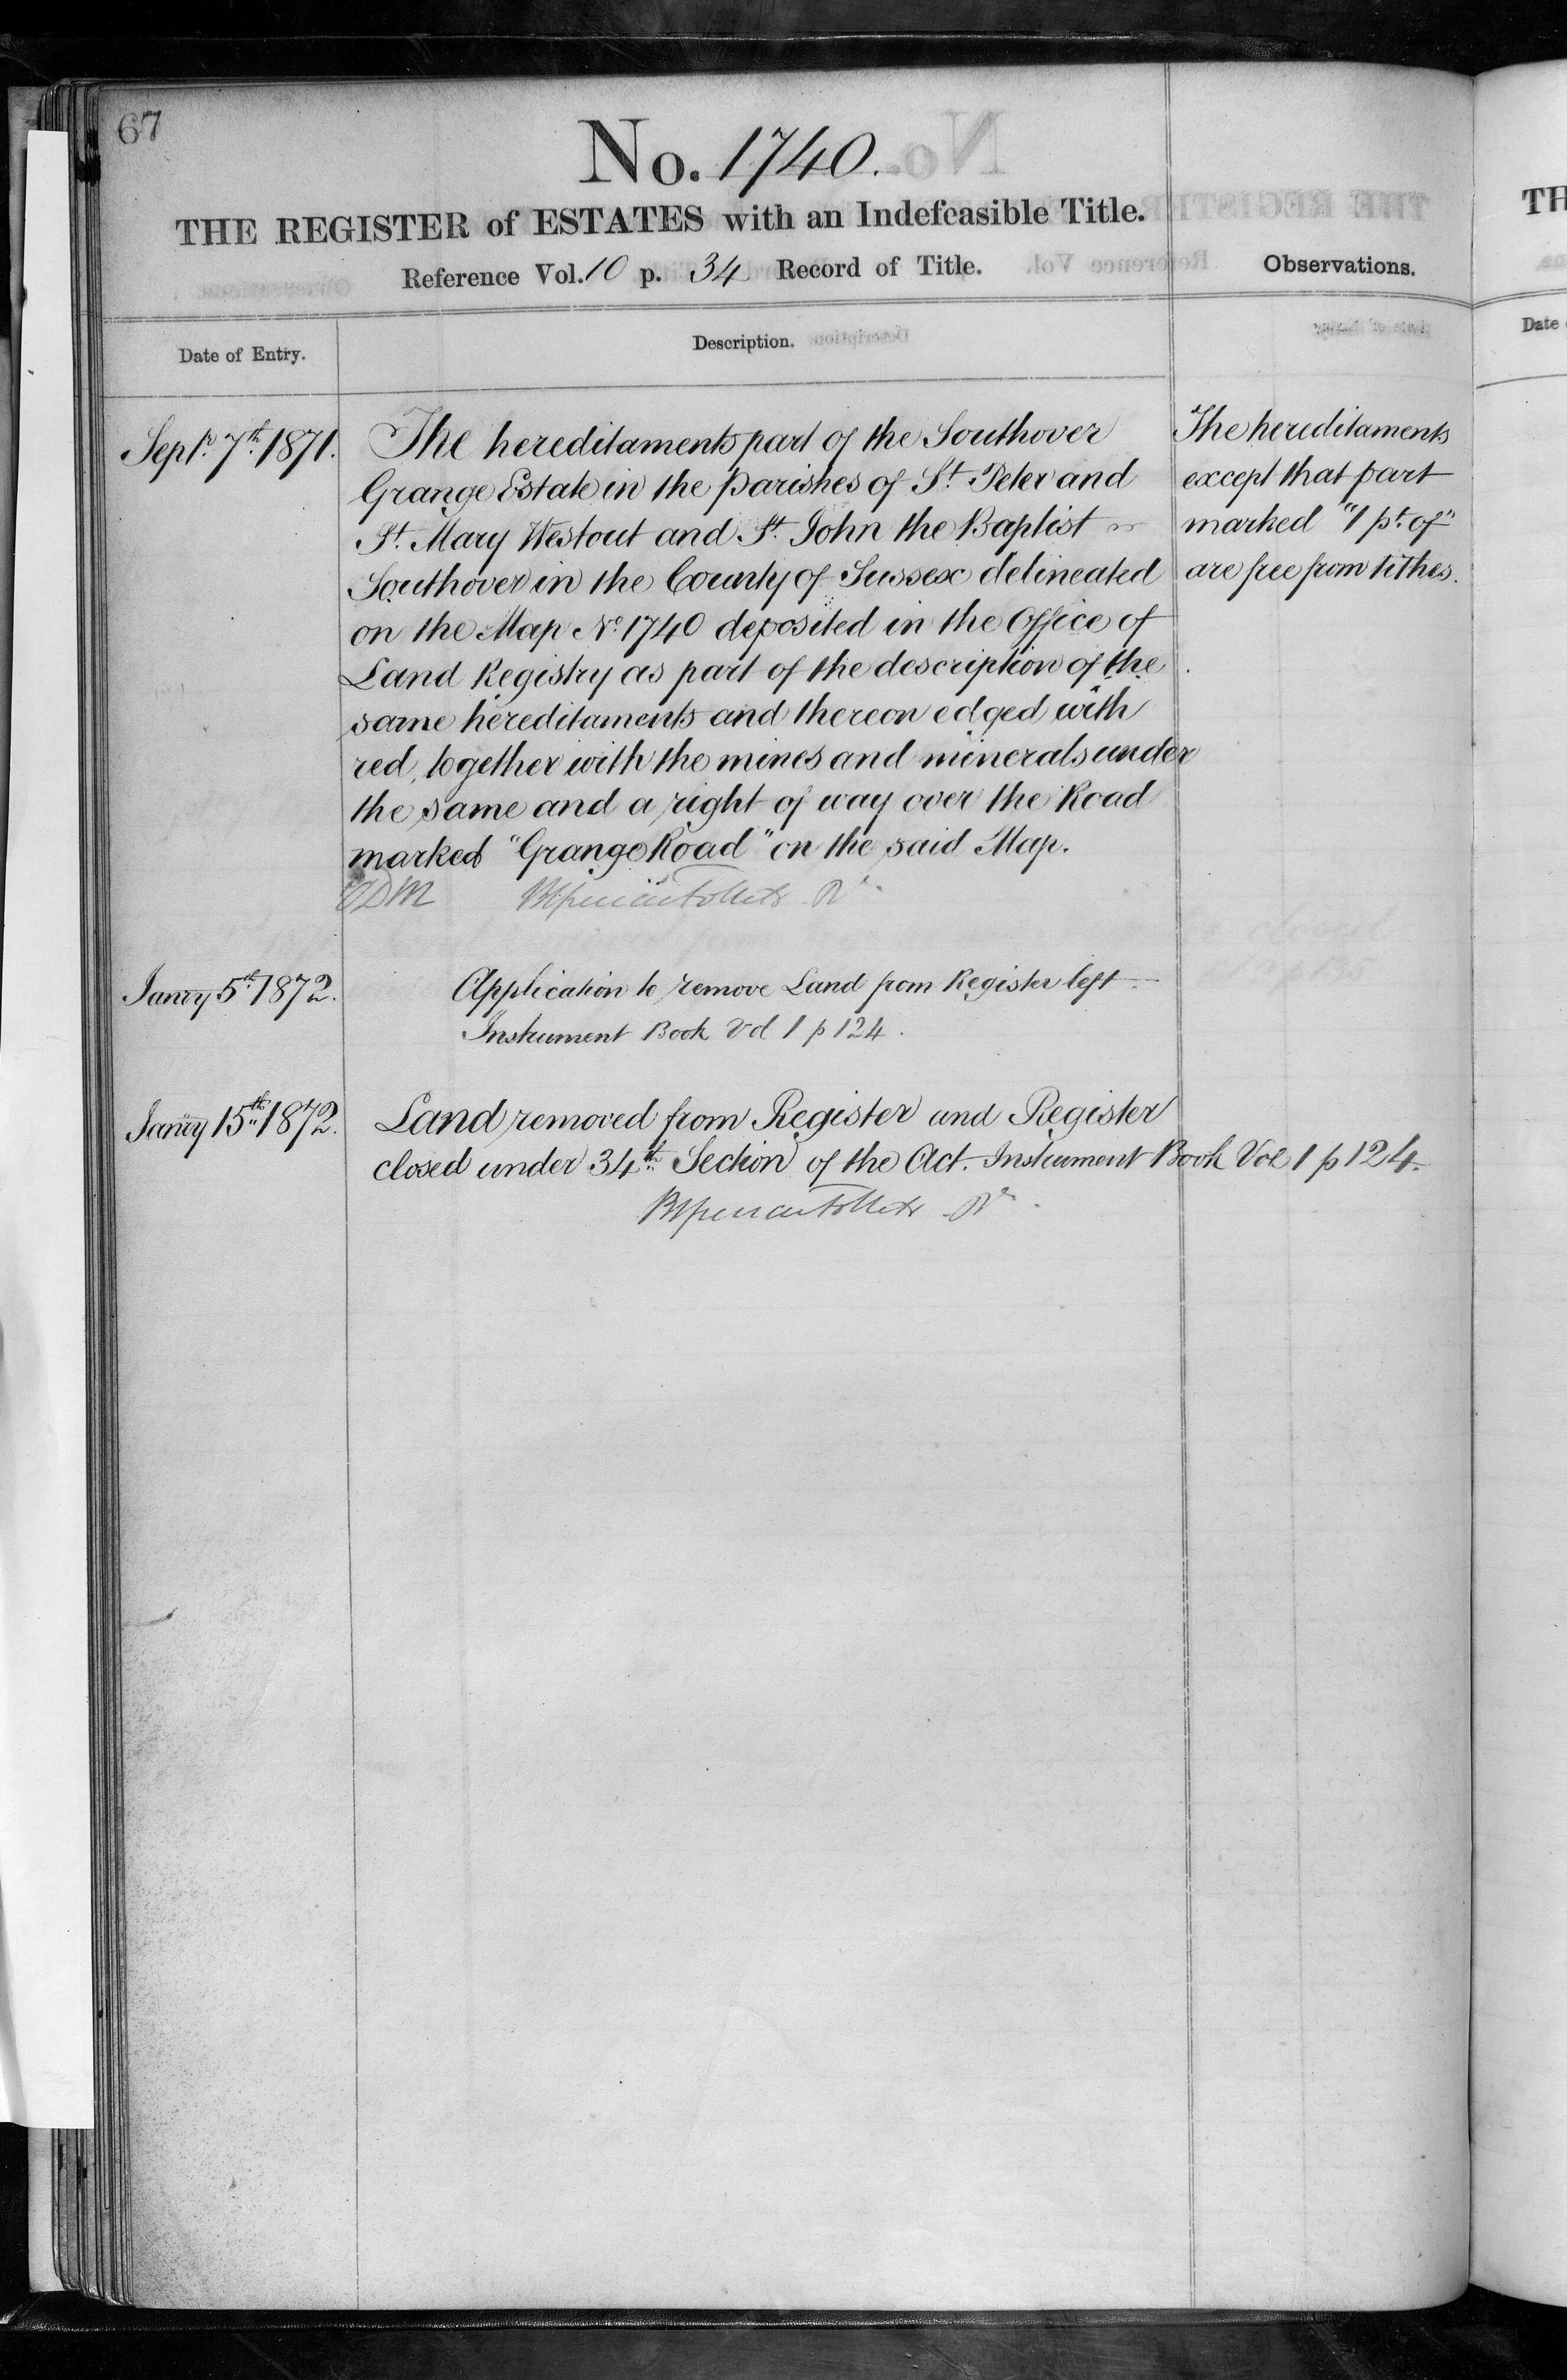 67
No. 1740.
THE REGISTER of ESTATES with an Indefeasible Title.
Reference Vol. 10 p. 34 Record of Title.
Observations.
Date of Entry.
Description.
Septr. 7th. 1871.
The hereditaments part of the Southover
Grange Estate in the Parishes of St. Peter and
St. Mary Westout and St. John the Baptist
Southover in the County of Sussex delineated
on the Map No. 1740 deposited in the Office of
Land Registry as part of the description of the
same hereditaments and thereon edged with
red, together with the mines and minerals under
the same and a right of way over the Road
marked "Grange Road" on the said Map.
The hereditaments
except that part
marked "1 pt. of"
are free from tithes.
Janry 5th. 1872.
Application to remove Land from Register left
Instrument Book Vol 1 p 124.
Janry 15th. 1872.
Land removed from Register and Register
closed under 34th. Section of the Act. Instrument Book Vol 1 p 124.
TH
Date